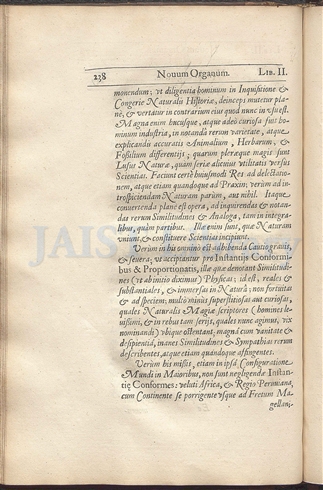 238 Nouum Organum. LIB. II.
monendum; vt diligentia hominum in Inquisitione &
Congerie Naturalis Historiæ, deinceps mutetur pla-
nè, & vertatur in contrarium eius quod nunc in vsu est.
Magna enim hucusque, atque adeò curiosa fuit ho-
minum industria, in notandâ rerum varietate, atque
explicandis accuratis Animalium, Herbarum, &
Fossilium differentijs; quarum pleræque magis sunt
Lusus Naturæ, quàm seriæ alicuius vtilitatis versus
Scientias. Faciunt certè huiusmodi Res ad delectatio-
nem, atque etiam quandoque ad Praxin; verùm ad in-
trospiciendam Naturam parùm, aut nihil. Itaque
conuertenda planè est opera, ad inquirendas & notan-
das rerum Similitudines & Analoga, tam in integra-
libus, quàm partibus. Illæ enim sunt, quæ Naturam
vniunt, & constituere Scientias incipiunt.
Verùm in his omninò est adhibenda Cautio grauis,
& seuera; vt accipiantur pro Instantijs Conformi-
bus & Proportionatis, illæ quæ denotant Similitudi-
nes (vt ab initio diximus) Physicas; id est, reales &
substantiales, & immersas in Naturâ; non fortuitas
& ad speciem; multò minùs superstitiosas aut curiosas,
quales Naturalis Magiæ scriptores (homines le-
uissimi, & in rebus tam serijs, quales nunc agimus, vix
nominandi) vbique ostentant; magnâ cum vanitate &
desipientiâ, inanes Similitudines & Sympathias rerum
describentes, atque etiam quandoque affingentes.
Verùm his missis, etiam in ipsâ Configuratione
Mundi in Maioribus, non sunt negligendæ Instan-
tię Conformes: veluti Africa, & Regio Peruuiana,
cum Continente se porrigente vsque ad Fretum Ma-
gellani;